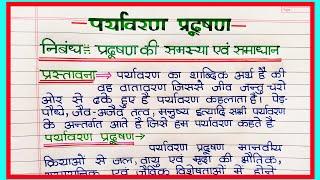 पर्यावरण प्रदूषण
निबंध:: प्रदूषण की समस्या एवं समाधान
प्रस्तावना → पर्यावरण का शाब्दिक अर्थ है की
वह वातावरण जिससे जीव जन्तु चारो
ओर से ढके हुए है पर्यावरण कहलाता है। पेड़-
पौधे, जीव-अजैव तत्व, मनुष्य इत्यादि सभी पर्यावरण
के अन्तर्गत आते है जिसे हम पर्यावरण कहते है
पर्यावरण प्रदूषण→
पर्यावरण प्रदूषण मानवीय
क्रियाओ से जल, वायु एवं मृदा की भौतिक,
एवं जैविक विशेषताओं में होने